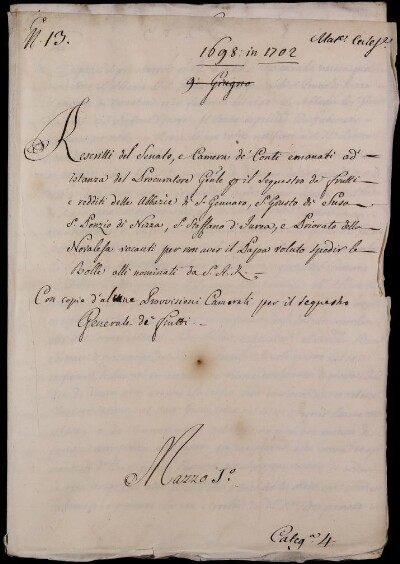 N. 13.
Mat.e Eccles.e
1698: in 1702
9: Giugno
Rescritti del Senato, e Camera de' Conti emanati ad'
istanza del Procuratore Gñle p il sequestro de' frutti
e redditi delle Abbazie di S. Gennaro, S. Giusto di Susa
S. Ponzio di Nizza, S. Steffano d'Ivrea, e Priorato della
Novalesa vacanti per non aver il Papa voluto spedir le
Bolle alli nominati da S. A. R.
Con copia d'alcune Provvisioni Camerali per il sequestro
Generale de' frutti.
Mazzo 1.o
Categ.a 4.